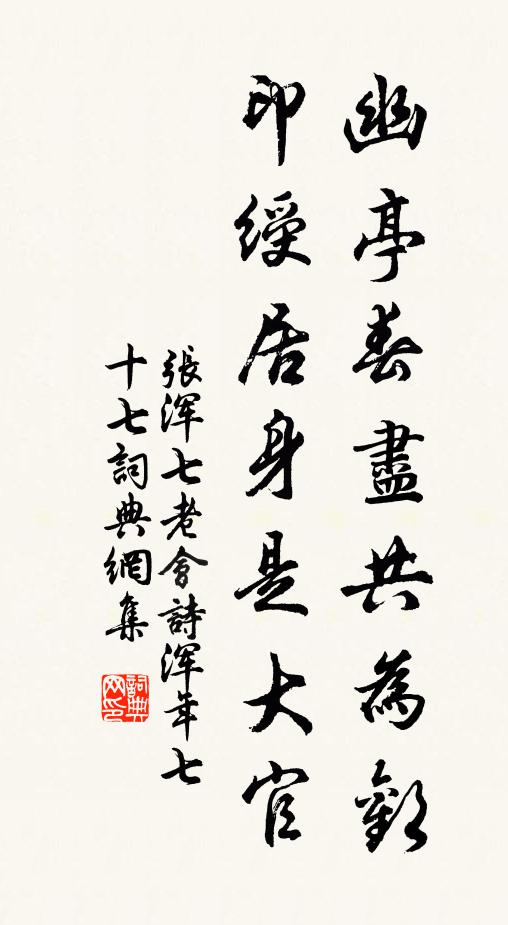 幽亭春盡共為歡
印綬居身是大官
張渾七老會詩渾年七
十七詞典網集
詞典
网印